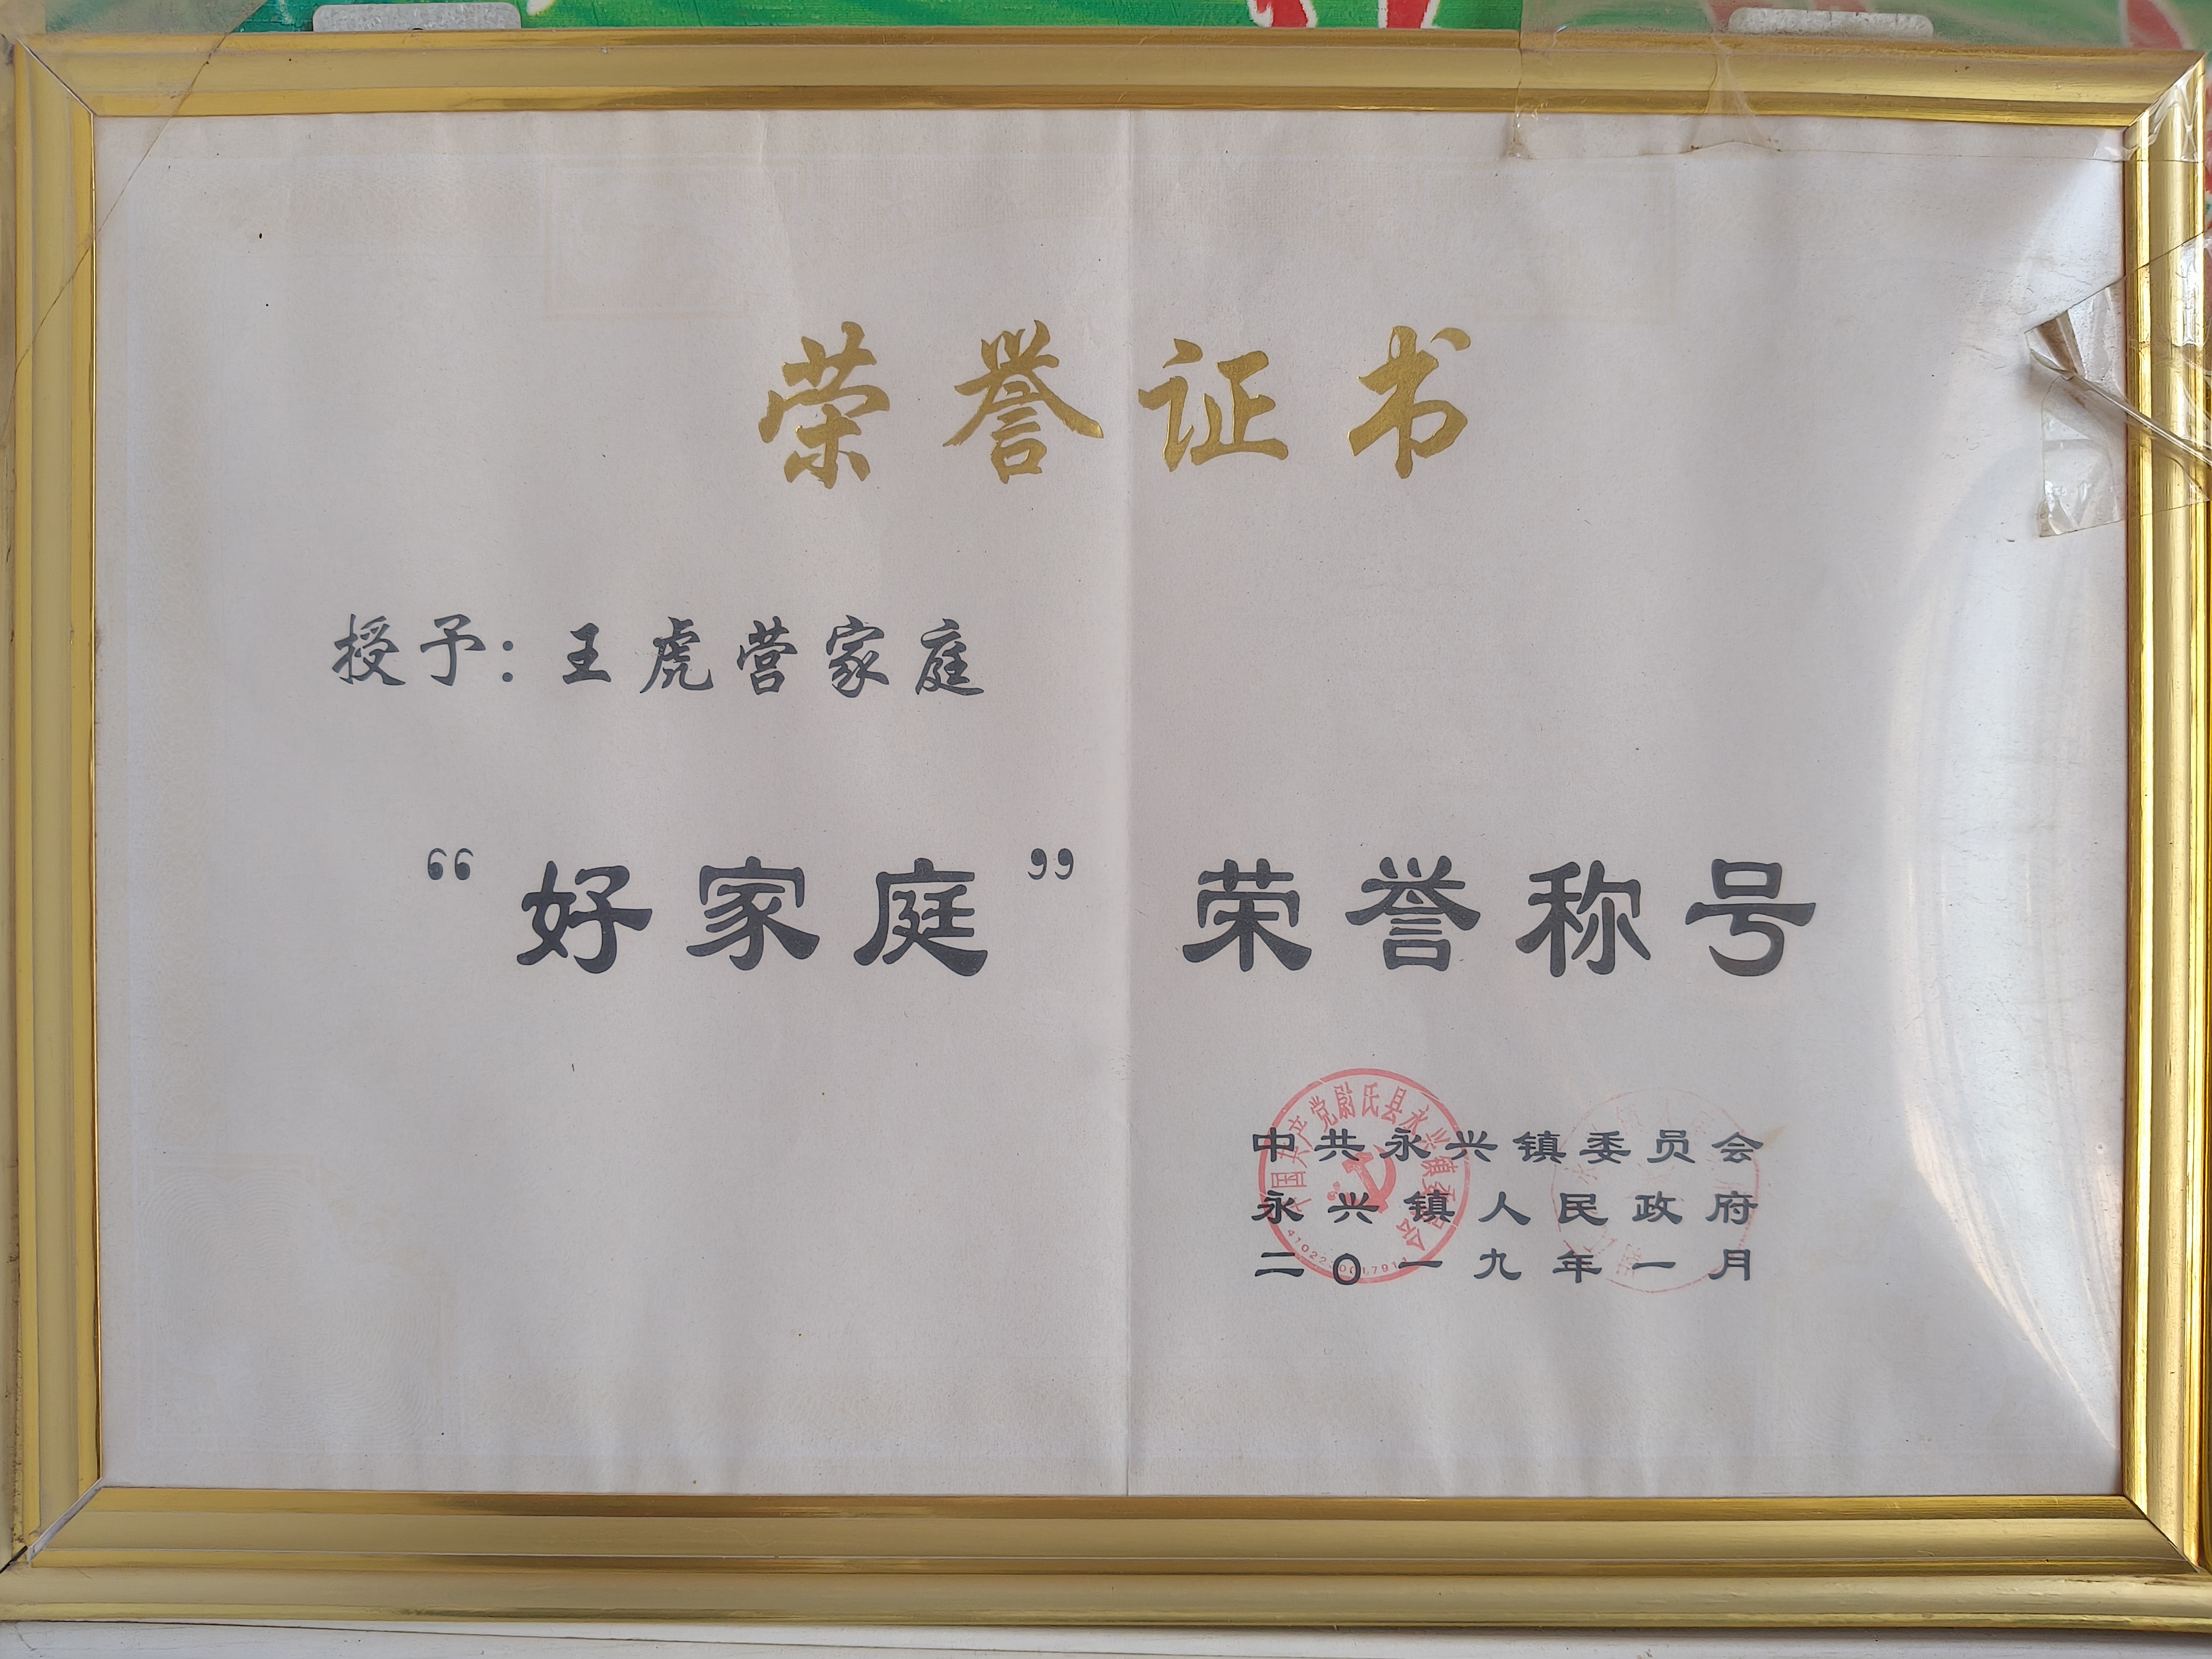 荣誉证书
授予：王虎营家庭
“好家庭”荣誉称号
中共永兴镇委员会
永兴镇人民政府
二〇一九年一月
中国共产党尉氏县永兴镇委员会